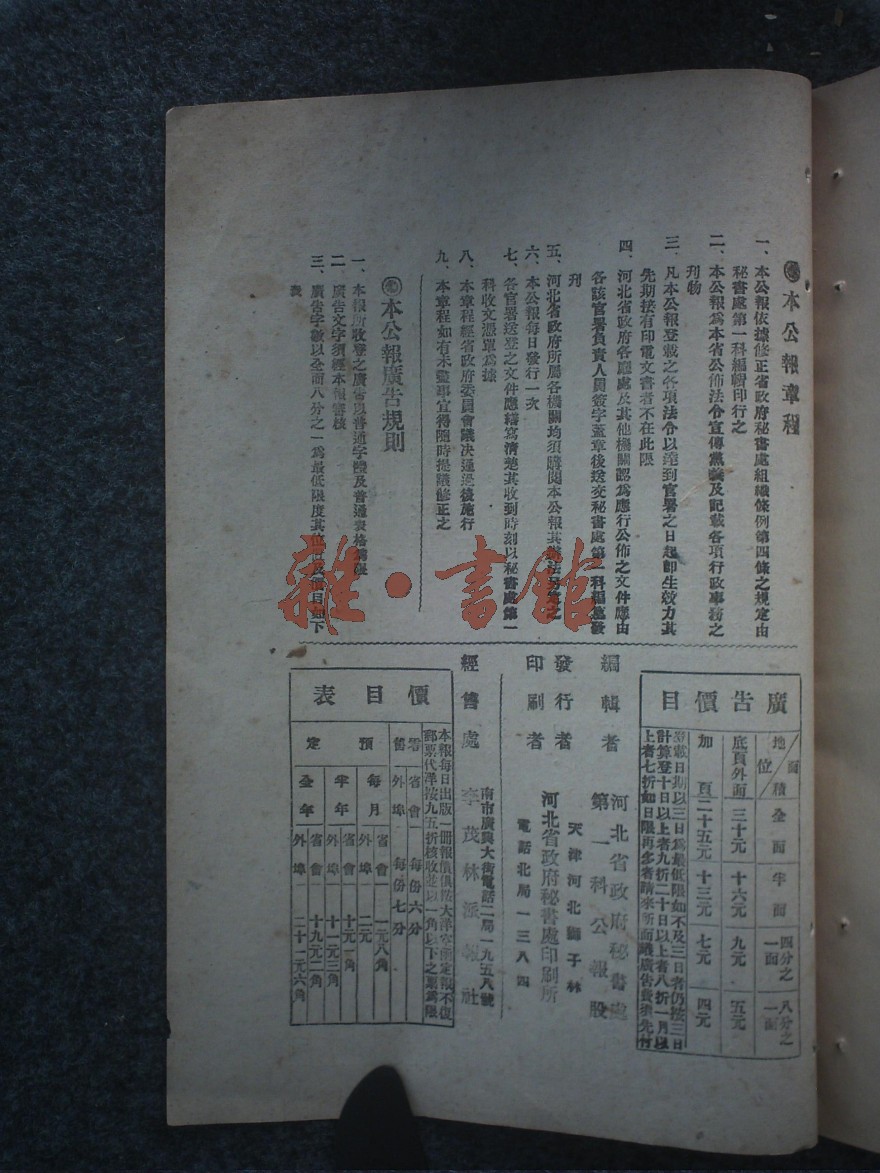 本公報章程
一、本公報依據修正省政府秘書處組織條例第四條之規定由
秘書處第一科編輯印行之
二、本公報爲本省公佈法令宣傳黨義及記載各項行政事務之
刊物
三、凡本公報登載之各項法令以達到官署之日起即生效力其
先期接有印電文書者不在此限
四、河北省政府各廳處及其他機關認爲應行公佈之文件應由
各該官署負責人員簽字蓋章後送交秘書處第一科編纂發
刊
五、河北省政府所屬各機關均須購閱本公報其辦法另定之
六、本公報每日發行一次
七、各官署送登之文件應繕寫清楚其收到時刻以秘書處第一
科收文憑單爲據
八、本章程經省政府委員會議决通過後施行
九、本章程如有未盡事宜得隨時提議修正之
本公報廣告規則
一、本報所收登之廣告以普通字體及普通表格爲限
二、廣告文字須經本報審核
三、廣告字數以全面八分之一爲最低限度其地位及價目如下
表
廣告價目
面積 地位 全面 半面 四分之一面 八分之一面
底頁外面 三十元 十六元 九元 五元
加頁 二十五元 十三元 七元 四元
登載日期以三日爲最低限如不及三日者仍按三日
計算登十日以上者九折二十日以上者八折一月以
上者七折如日限再多者請來函面議廣告費須先付
編輯者 河北省政府秘書處
第一科公報股
天津河北獅子林
發行者
印刷者 河北省政府秘書處印刷所
電話北局一三八四
經售處 南市廣興大街電話二局一九五八號
李茂林派報社
價目表
本報每日出版一冊報價俱按大洋空函定報不復
郵票代洋按九五折核收並以一角以下之票爲限
零售 省會 每份六分
外埠 每份七分
預定
每月 省會 一元八角
外埠 二元
半年 省會 十元一角
外埠 十一元三角
全年 省會 十九元二角
外埠 二十一元六角
雜·書館